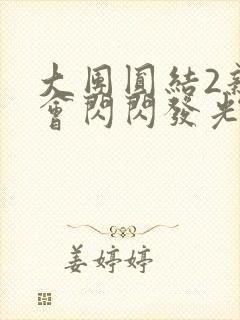 大團圓結2新
會閃閃發光
姜婷婷